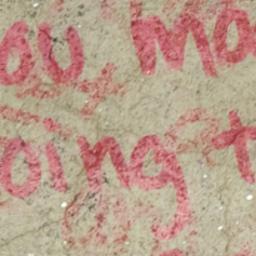 ou ma
oing t